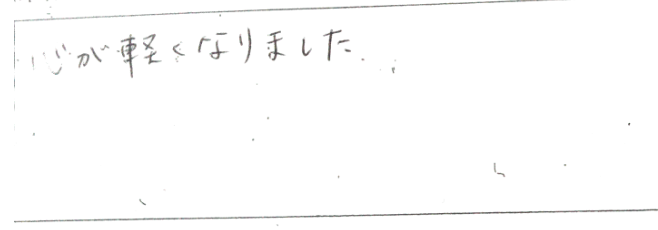 心が軽くなりました